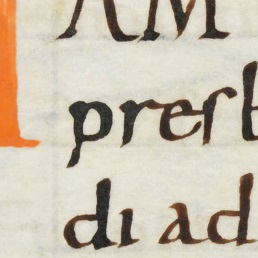 AM
presb
di ad